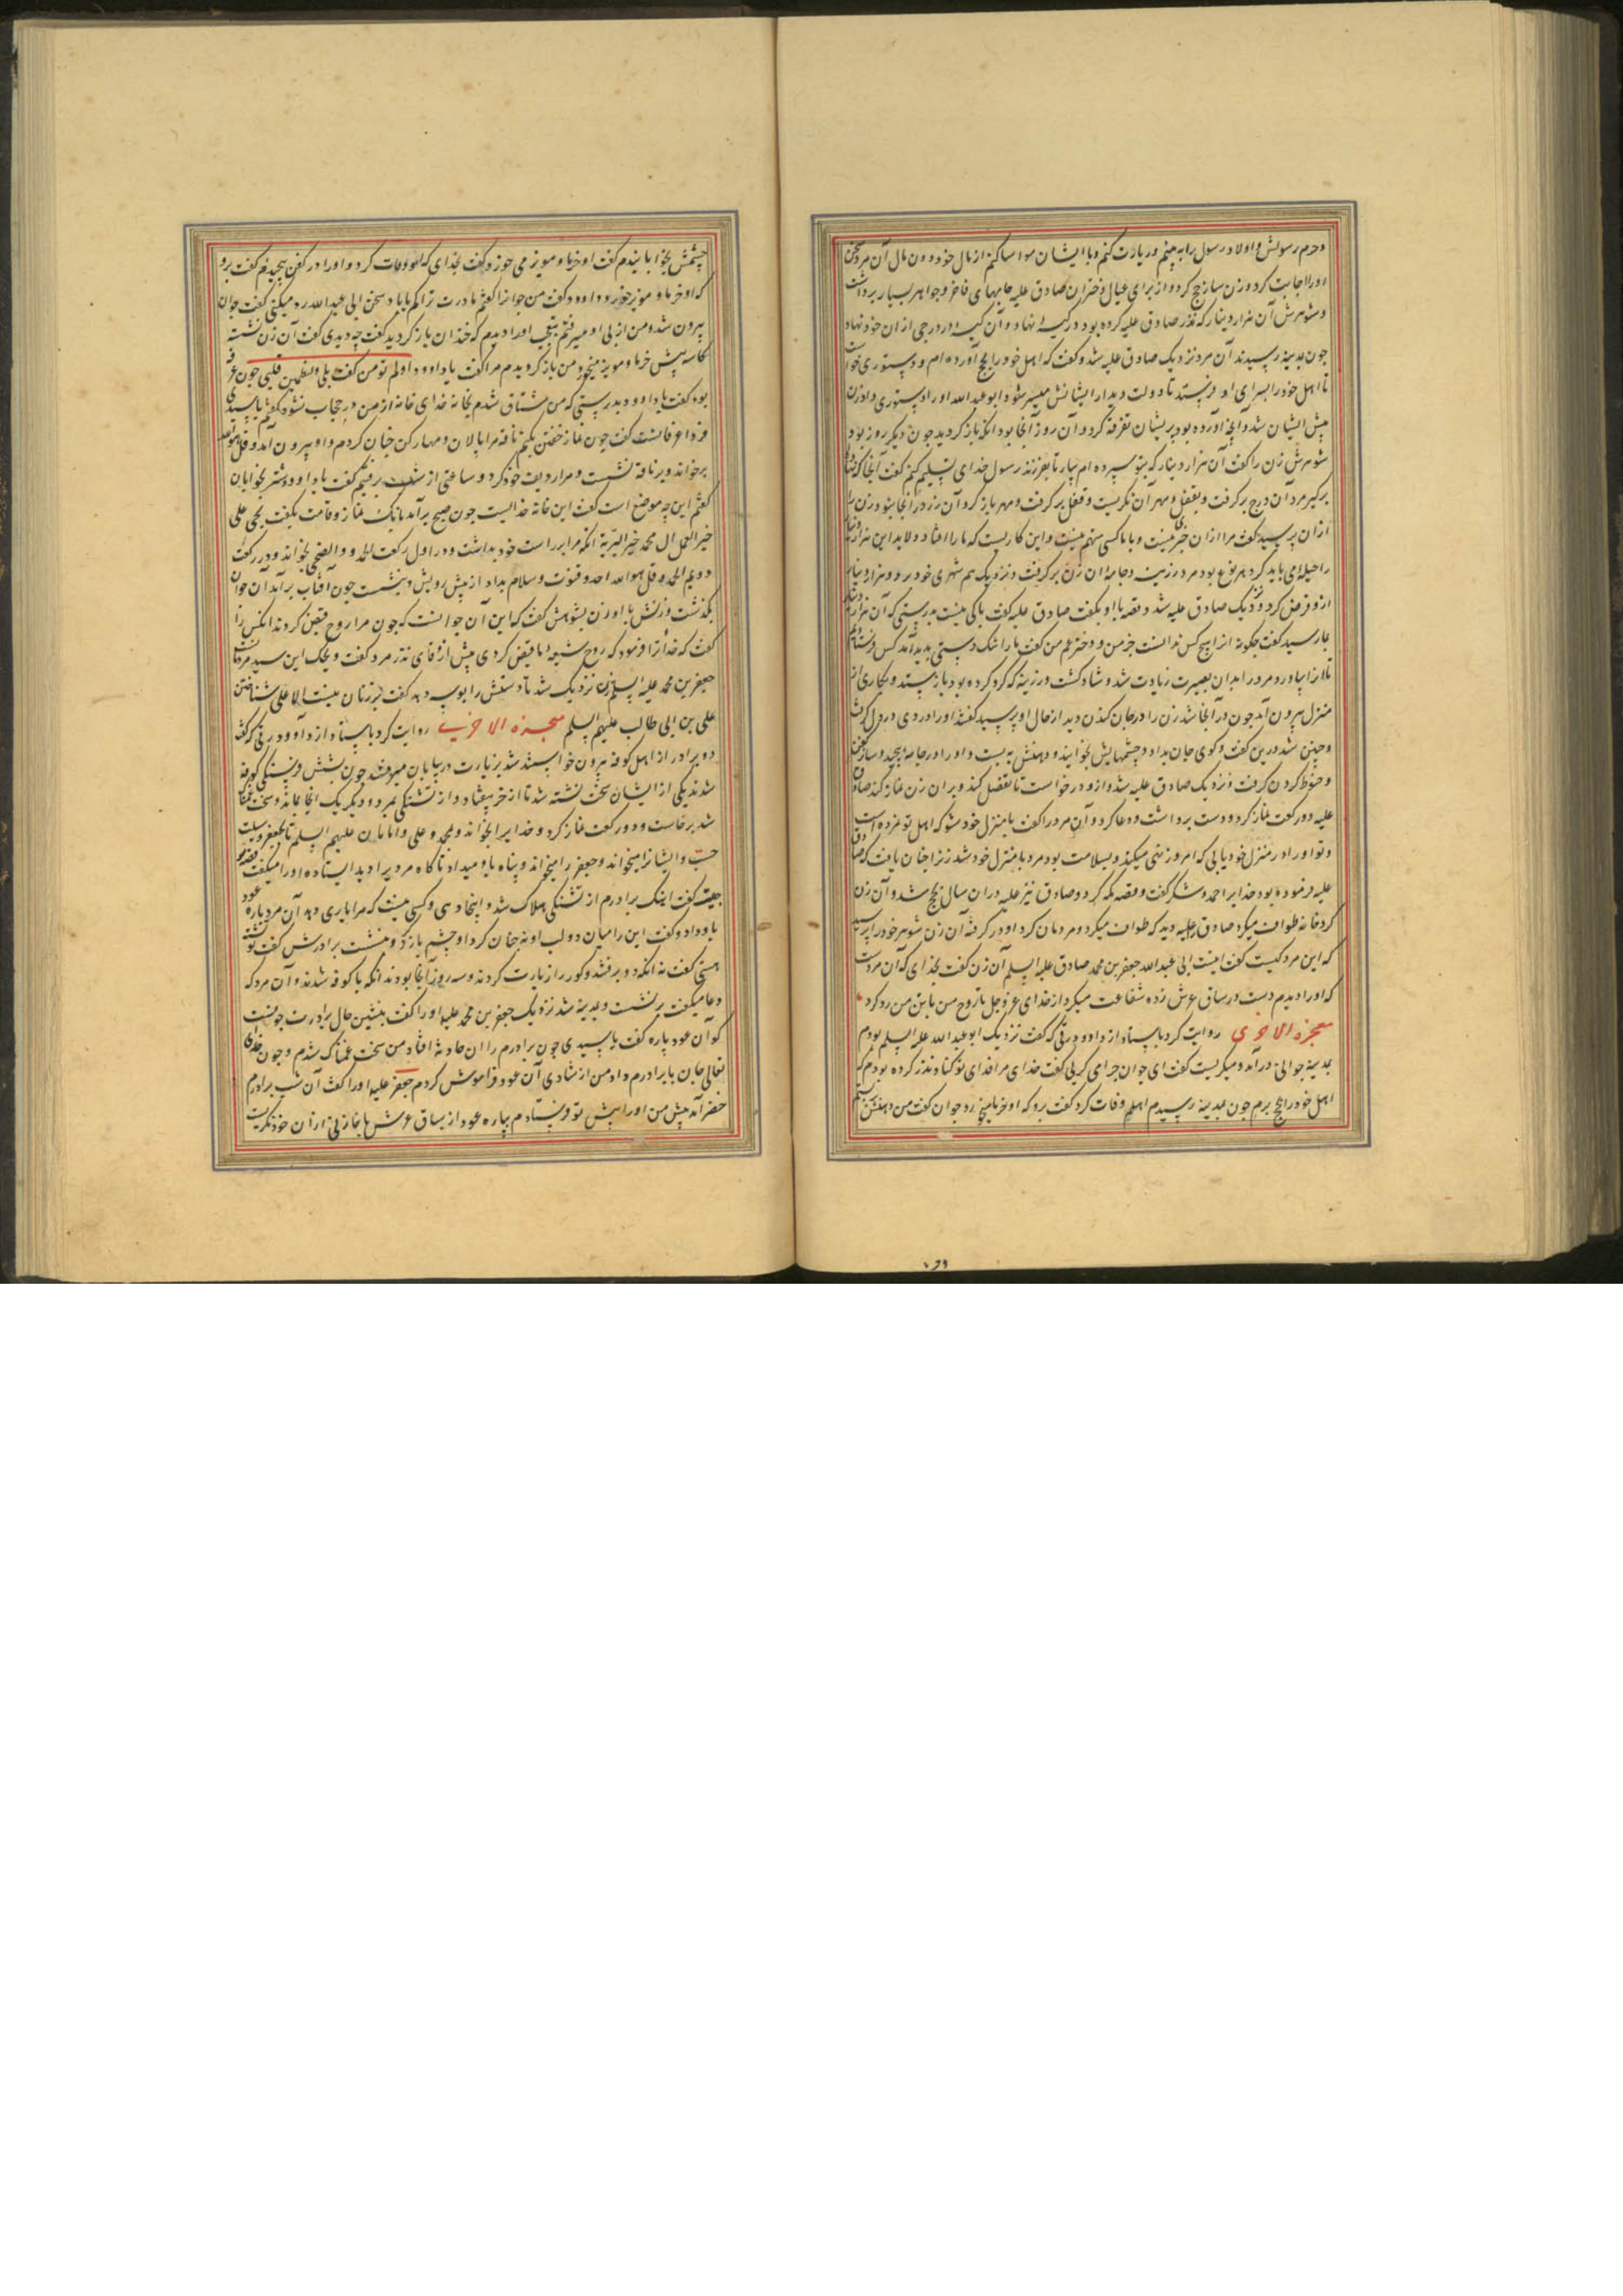 و حرم رسولش و اولاد رسول را به بینم و زیارت کنم و با ایشان مواسا کنم از مال خود و ون مال آن مرد سخن
او را اجابت کرد و زن ساز حج کرد و از برای عیال و دختران صادق علیه جامهای فاخر و جواهر بسیار برداشت
و شوهرش آن هزار دینار که نذر صادق علیه کرده بود در کیسه نهاد و آن کیسه در درجی از ان خود نهاد
چون بمدینه رسیدند آن مرد نزدیک صادق علیه شد و گفت که اهل خود را بحج آورده ام و دستوری خواست
تا اهل خود را بسرای او فرستد تا دولت دیدار ایشانش میسر شود ابو عبدالله او را دستوری داد زن
پیش ایشان شد و آنچه آورده بود بریشان تفرقه کرد و آن روز آنجا بود انکه باز کردید چون دیکر روز بود
شوهرش زن را گفت آن هزار دینار که بتو سپرده ام بیار تا بفرزند رسول خدای تسلیم کنم گفت آنجا که نهاد
برکیر مرد آن درج برکرفت و بقفل و مهر آن نکریست و قفل برکرفت و مهر باز کرد آن زر در آنجا نبود زن را
از ان پرسید گفت مرا از ان خبر نیست و با ما کسی متهم نیست و این کاریست که ما را افتاد و لابد این هزار دینار
را حیله ای باید کرد بهر نوع بود مرد زینت و جامه ان زن برکرفت و نزدیک هم شهری خود برد و هزار دینار
ازو قرض کرد و نزدیک صادق علیه شد و قصه با او بگفت صادق علیه گفت باکی نیست بدرستی که آن هزار دینار
بما رسید گفت چکونه از ان هیچ کس ندانست جز من و دختر عم من گفت ما را تنک دستی بدید آمد کس فرستادیم
تا انرا بیاورد مرد را بدان بصیرت زیادت شد و شاد کشت و زرینه که کرو کرده بود باز ستد و بکاری از
منزل بیرون آمد چون در آنجا شد زن را در جان کندن دید از حال او پرسید گفتند او را دردی در دل کرفت
و چنین شد درین گفت و کوی جان بداد و چشمهایش بخوابانید و دهنش به بست و او را در جامه پیچید و ساز کفن
و حنوط کردن کرفت و نزدیک صادق علیه شد و ازو درخواست تا تفضل کند و بران زن نماز کند صادق
علیه دو رکعت نماز کرد و دست برداشت و دعا کرد و آن مرد را گفت با منزل خود شو که اهل تو نمرده است
و تو او را در منزل خود یابی که امر و نهی میکند و بسلامت بود مرد با منزل خود شد زن را چنان یافت که صادق
علیه فرموده بود خدایرا حمد و شکر گفت و قصد مکه کرد و صادق نیز علیه دران سال بحج شد و آن زن
کرد خانه طواف میکرد صادق را علیه دید که طواف میکرد و مردمان کرد او در کرفته آن زن شوهر خود را پرسید
که این مرد کیست گفت اینست ابی عبدالله جعفر بن محمد صادق علیه السلام آن زن گفت بخدای که آن مردست
که او را دیدم دست در ساق عرش زده شفاعت میکرد از خدای عز و جل تا روح من با تن من رد کرد
معجزه الاخری روایت کرد باسناد از داود رقی که گفت نزدیک ابو عبدالله علیه السلم بودم
بمدینه جوانی در آمد و میکریست گفت ای جوان چرا می کریی گفت خدای مرا فدای تو کناد نذر کرده بودم که
اهل خود را بحج برم چون بمدینه رسیدم اهلم وفات کرد گفت برو که او خرما میخورد جوان گفت من دهنش بستم
چشمش بخوابانیدم گفت او خرما و مویز می خورد گفت بخدای که او وفات کرد و او را در کفن پیچیدم گفت برو
که او خرما و مویز خورد داود گفت من جوانرا گفتم مادرت ترا کم باباد سخن ابی عبدالله رد میکنی گفت جوان
بیرون شد و من از پی او میرفتم بتعجب او را دیدم که خندان باز کردید گفت چه دیدی گفت آن زن نشسته
کاسه پیش خرما و مویز میخورد من باز کردیدم مرا گفت یا داود اولم تؤمن گفت بلی و لیطمئن قلبی چون عرفه
بود گفت یا داود بدرستی که من مشتاق شدم بخانه خدای خانه از من در حجاب نشود گفتم یا سیدی
فردا عرفاتست گفت چون نماز خفتن بکنم ناقه مرا پالان و مهار کن چنان کردم و او بیرون آمد و قل هو الله
برخواند و بر ناقه نشست و مرا ردیف خود کرد و ساعتی از شب برفتیم گفت یا داود شتر بخوابان
گفتم این چه موضع است گفت این خانه خدایست چون صبح برآمد بانک نماز و قامت بگفت بحی علی
خیر العمل ال محمد خیر البریه انکه مرا بر راست خود بداشت و در اول رکعت الحمد و والضحی بخواند و در رکعت
دویم الحمد و قل هو الله احد و قنوت و سلام بداد از پیش رویش و بنشست چون آفتاب برآمد آن جوان
بگذشت و زنش با او زن بشوهرش گفت که این آن جوانست که چون مرا روح قبض کردند انکس را
گفت که خدا ترا فرمود که روح شیعه ما قبض کردی پیش از وفای نذر مرد گفت ویحک این سید مردمانست
جعفر بن محمد علیه السلم زن نزدیک شد تا دستش را بوسه دهد گفت بر زنان نیست الا علی شناختن
علی بن ابی طالب علیهم السلم معجزه الاخری روایت کرد باسناد از داود رقی که گفت
دو برادر از اهل کوفه بیرون خواستند شد بزیارت در بیابان میرفتند چون تشنکی کوفه
شدند یکی از ایشان سخت تشنه شد تا از خر بیفتاد و از تشنکی بمرد و دیکر یک انجا بماند و سخت غمناک
شد برخاست و دو رکعت نماز کرد و خدایرا بخواند و بمحمد و علی و امامان علیهم السلم تا بجعفر وسیلت
جست و ایشانرا میخواند و جعفر را میخواند و پناه باو میداد تا ناکاه مردیرا دید ایستاده او را میگفت قصه تو
چیست گفت اینک برادرم از تشنکی هلاک شد و اینجا و کسی نیست که مرا یاری دهد آن مرد پاره عود
باو داد و گفت این را میان دو لب او نه چنان کرد او چشم باز کرد و بنشست برادرش گفت تو تشنه
هستی گفت نه انکه دو برفتند و کور را زیارت کردند و سه روز آنجا بودند انکه با کوفه شدند و آن مرد که
دعا میگفت برنشست و بمدینه شد نزدیک جعفر بن محمد علیه او را گفت بنشین حال برادرت چونست
کو آن عود پاره گفت یا سیدی چون برادرم را ان حادثه افتاد من سخت غمناک شدم و چون خدای
تعالی جان با برادرم داد من از شادی آن عود فراموش کردم جعفر علیه او را گفت آن شب برادرم
خضر آمد پیش من او را پیش تو فرستادم بپاره عود از ساق عرش با خازنی ازان خود نکریست